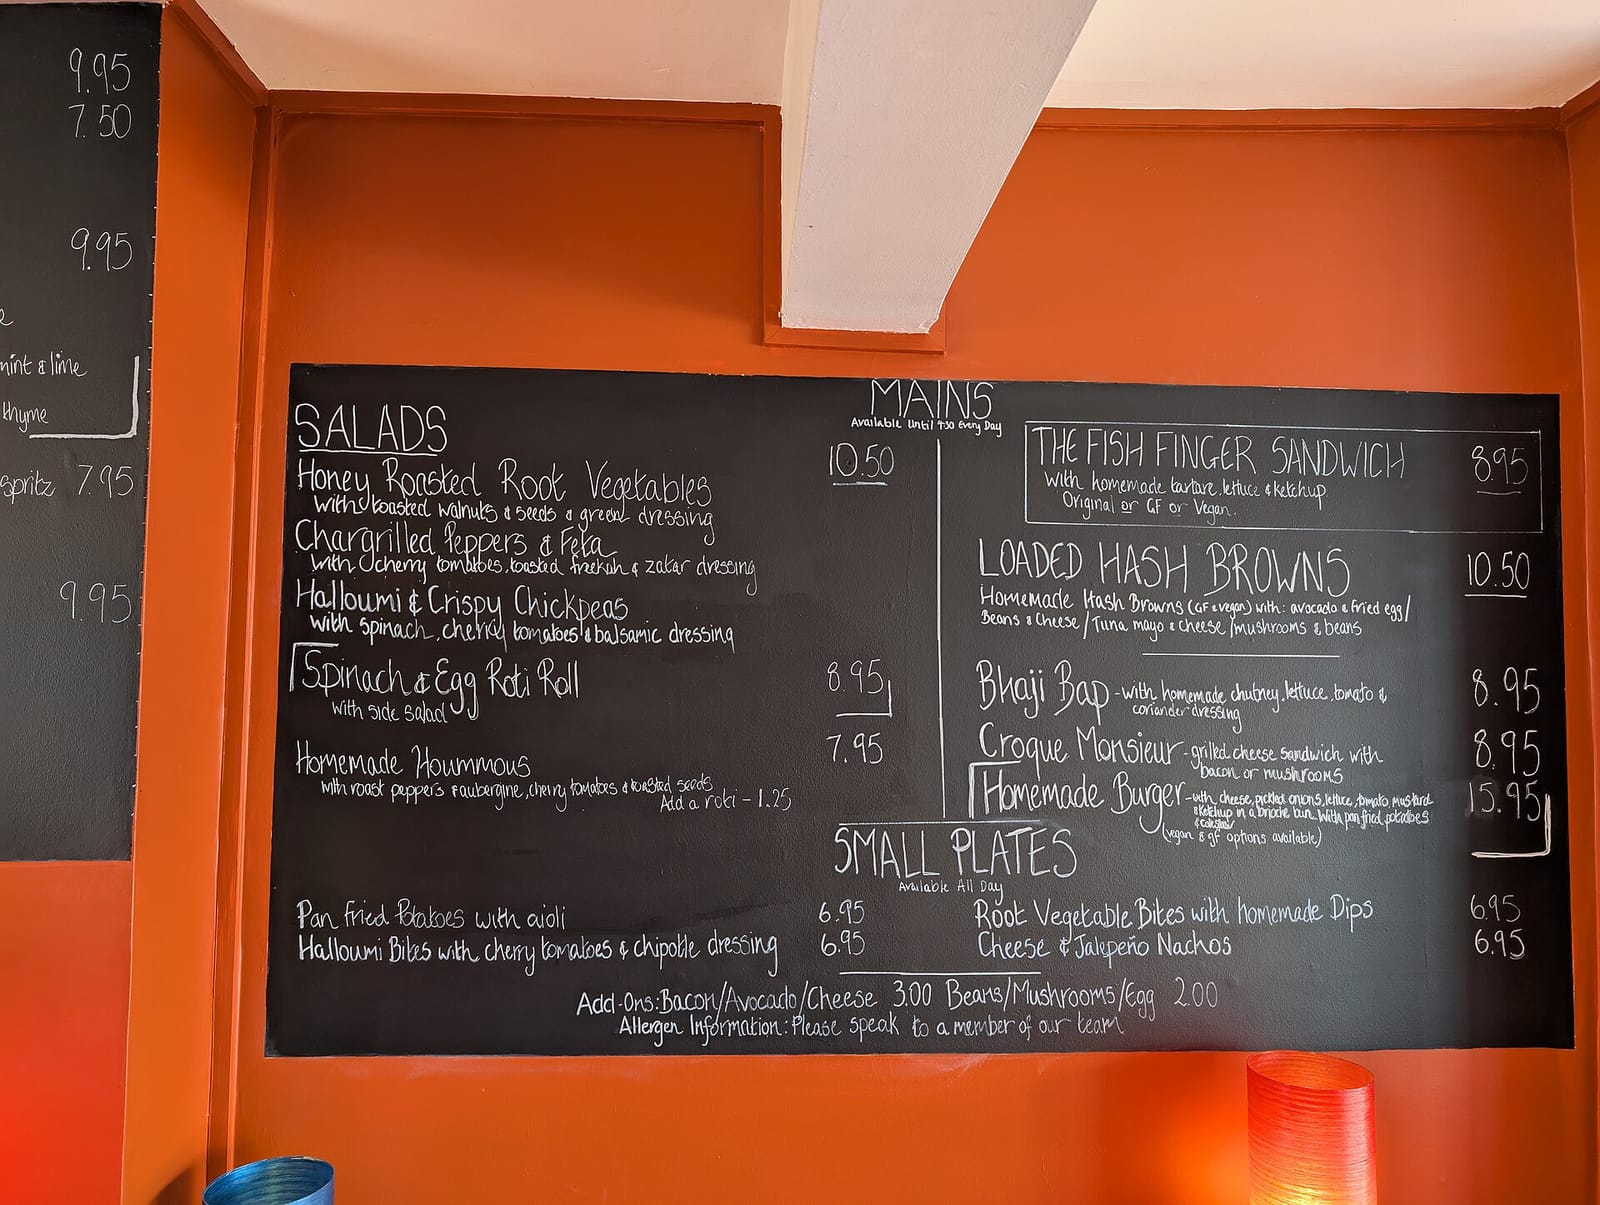 9.95
7.50
9.95
mint & lime
thyme
spritz 7.95
9.95
MAINS
Available Until 4:30 Every Day
SALADS
10.50
Honey Roasted Root Vegetables
with toasted walnuts & seeds & green dressing
Chargrilled Peppers & Feta
with cherry tomatoes, toasted freekah & zatar dressing
Halloumi & Crispy Chickpeas
with spinach, cherry tomatoes & balsamic dressing
Spinach & Egg Roti Roll 8.95
with side salad
Homemade Hoummous 7.95
with roast peppers & aubergine, cherry tomatoes & toasted seeds
Add a roti - 1.25
THE FISH FINGER SANDWICH 8.95
with homemade tartare, lettuce & ketchup.
Original or GF or Vegan.
LOADED HASH BROWNS 10.50
Homemade Hash Browns (GF & vegan) with: avocado & fried egg/
Beans & Cheese/Tuna mayo & cheese/mushrooms & beans
Bhaji Bap - with homemade chutney, lettuce, tomato & 8.95
coriander dressing
Croque Monsieur - grilled cheese sandwich with 8.95
bacon or mushrooms
Homemade Burger - with cheese, pickled onions, lettuce, tomato, mustard 15.95
& ketchup in a brioche bun. With pan fried potatoes
& coleslaw
(vegan & gf options available)
SMALL PLATES
Available All Day
Pan Fried Potatoes with aioli 6.95
Halloumi Bites with cherry tomatoes & chipotle dressing 6.95
Root Vegetable Bites with homemade Dips 6.95
Cheese & Jalepeño Nachos 6.95
Add-Ons: Bacon/Avocado/Cheese 3.00 Beans/Mushrooms/Egg 2.00
Allergen Information: Please speak to a member of our team